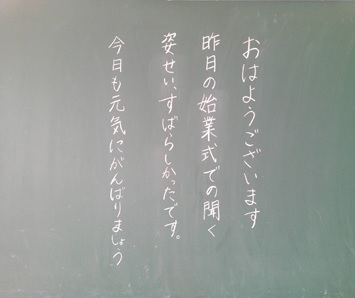 おはようございます
昨日の始業式での聞く
姿せい、すばらしかったです。
今日も元気にがんばりましょう